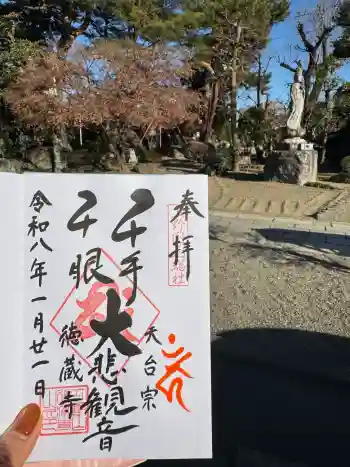 奉拝
天台宗
千手
千眼
大悲観音
徳蔵寺
令和八年一月廿一日